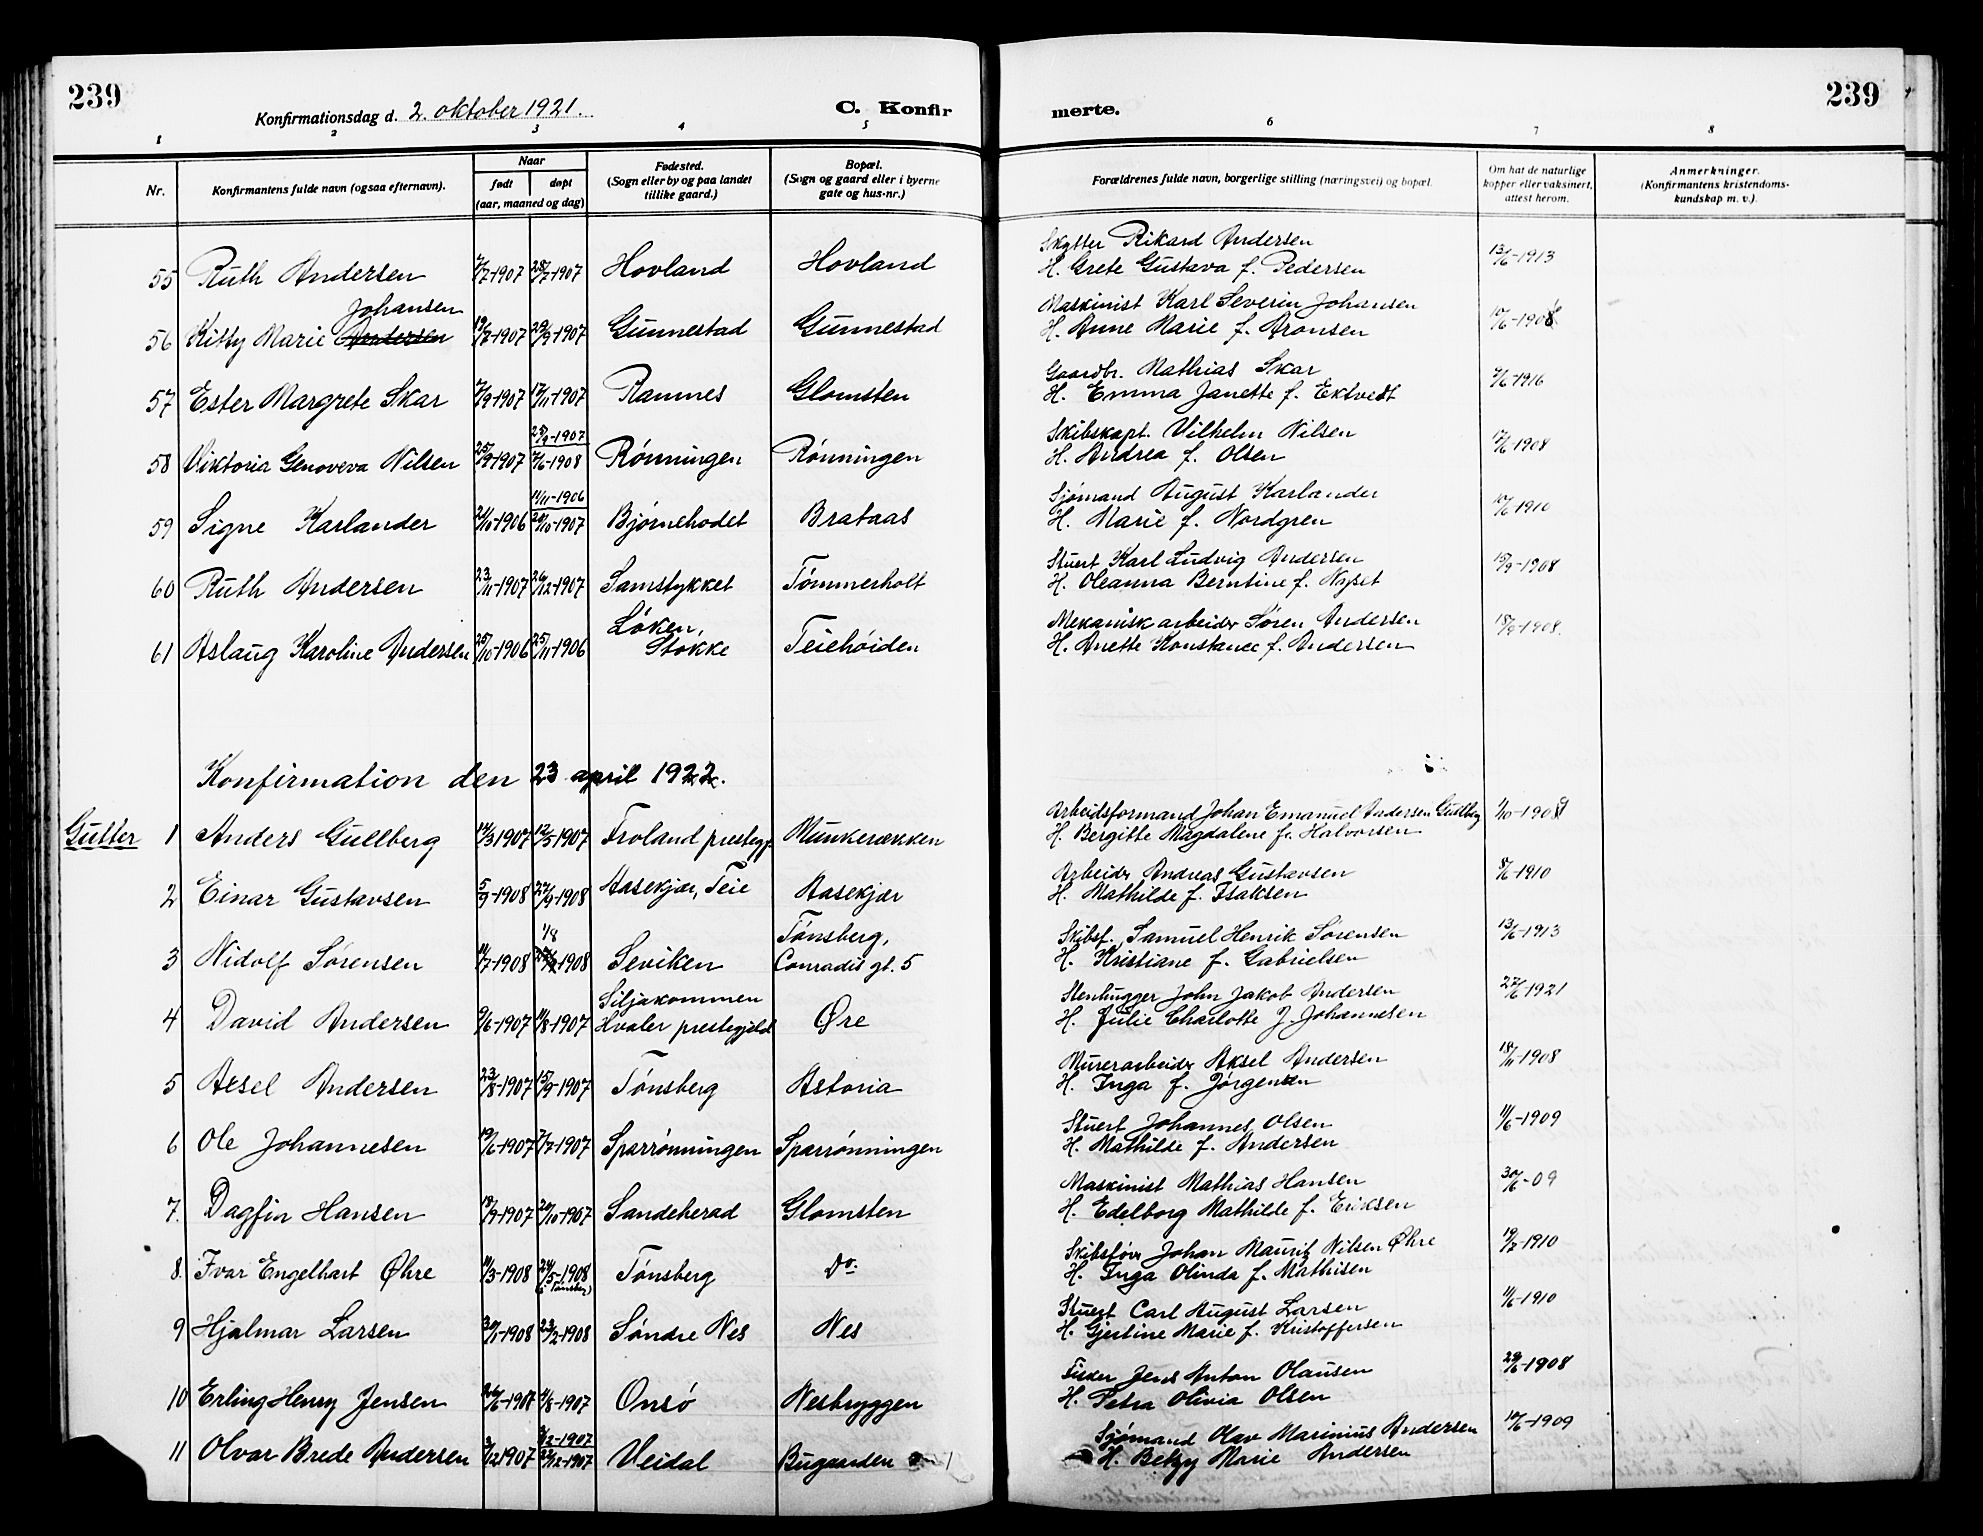 239
Konfirmationsdag d. 2. oktober 1921.
C. Konfirmerte.
239
1 2 3 4 5 6 7 8
Nr.
Konfirmantens fulde navn (ogsaa efternavn).
Naar
født døpt
(aar, maaned og dag)
Fødested.
(Sogn eller by og paa landet
tillike gaard.)
Bopæl.
(Sogn og gaard eller i byerne
gate og hus-nr.)
Forældrenes fulde navn, borgerlige stilling (næringsvei) og bopæl.
Om hat de naturlige
kopper eller vaksinert,
attest herom.
Anmerkninger.
(Konfirmantens kristendoms-
kundskap m. v.).
55 Ruth Andersen 7/7-1907 28/7-1907 Hovland Hovland
Skytter Rikard Andersen
H. Grete Gustava f. Pedersen
13/6-1913
Johansen
56 Kitty Marie Andersen 19/7-1907 29/9-1907 Gunnestad Gunnestad
Maskinist Karl Severin Johansen
H. Anne Marie f. Aronsen
10/6-1908
57 Ester Margrete Skar 7/9-1907 17/11-1907 Ramnes Glomsten
Gaardbr. Mathias Skar
H. Emma Janette f. Ektvedt
7/6-1916
58 Viktoria Genoveva Nilsen 25/9-1907 25/9-1907 7/6-1908 Rønningen Rønningen
Skibskapt. Vilhelm Nilsen
H. Andrea f. Olsen
17/6-1908
59 Signe Karlander 21/10-1906 11/11-1906 20/10-1907 Bjørnehodet Brataas
Sjømand August Karlander
H. Marie f. Nordgren
10/6-1910
60 Ruth Andersen 23/11-1907 26/12-1907 Samstykket Tømmerholt
Stuert Karl Ludvig Andersen
H. Oleanna Berntine f. Nyset
15/9-1908
61 Aslaug Karoline Andersen 25/10-1906 25/11-1906 Løken, Stokke Teiehøiden
Mekanisk arbeider Søren Andersen
H. Anette Konstance f. Andersen
18/9-1908.
Konfirmation den 23 april 1922.
Gutter
1 Anders Gullberg 14/3-1907 12/5-1907 Froland prestegj. Munkerækken
Arbeidsformand Johan Emanuel Andersen Gullberg
H. Bergitte Magdalene f. Halvorsen
2 Einar Gustavsen 5/9-1908 27/9-1908 Aasekjær, Teie Aasekjær
Arbeider Andreas Gustavsen
H. Mathilde f. Isaksen
8/6-1910
3 Nidolf Sørensen 11/7-1908 1/8 1908 Seviken Tønsberg, Conradis gt. 5
Skibsf. Samuel Henrik Sørensen
H. Kristiane f. Gabrielsen
13/6-1913
4 David Andersen 9/6-1907 11/8-1907 Siljakommen Hvaler prestegjeld Øre
Stenhugger John Jakob Andersen
H. Julie Charlotte f. Johannesen
27/6-1921
5 Aksel Andersen 23/8-1907 15/9-1907 Tønsberg Astoria
Murerarbeider Aksel Andersen
H. Inga f. Jørgensen
18/11-1908
6 Ole Johannesen 19/6-1907 7/7-1907 Sparrønningen Sparrønningen
Stuert Johannes Olsen
H. Mathilde f. Andersen
11/6-1909
7. Dagfin Hansen 18/9-1907 20/10-1907 Sandeherad Glomsten
Maskinist Mathias Hansen
H. Edelborg Mathilde f. Eriksen
30/6-09
8. Ivar Engelhart Øhre 11/3-1908 24/5-1908 (i Tønsberg) Tønsberg Do.
Skibsfører Johan Maurit Nilsen Øhre
H. Inga Olinda f. Mathisen
19/7-1910
9 Hjalmar Larsen 30/1-1908 23/2-1908 Søndre Nes Nes
Stuert Carl August Larsen
H. Gjertine Marie f. Kristoffersen
11/6-1910
10 Erling Henry Jensen 26/6-1907 4/8-1907 Onsø Nesbryggen
Fisker Jens Anton Olausen
H. Petra Olivia Olsen
29/6-1908
11 Olvar Brede Andersen 3/12 1907 3/12-1907 22/12-1907 Veidal Bugaarden
Sjømand Olav Marinius Andersen
H. Betzy Marie Andersen
10/6-1909